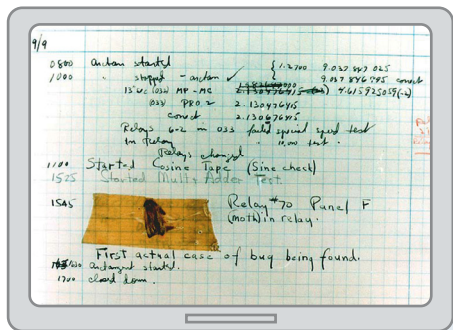 9/9
0800 Antan started { 1.2700 9.037 847 025
1000 " stopped - antan ✓ 9.037 846 795 correct
13" UC (032) MP-MC 2.130476415 4.615925059(-2)
(033) PRO.2 2.130476415
correct 2.130676415
Relays 6-2 in 033 failed special speed test
In Relay " 10.00 test.
Relays changed
1100 Started Cosine Tape (Sine check)
1525 Started Mult+Adder Test.
1545 Relay #70 Panel F
(moth) in relay.
First actual case of bug being found.
1630 antangent started.
1700 closed down.